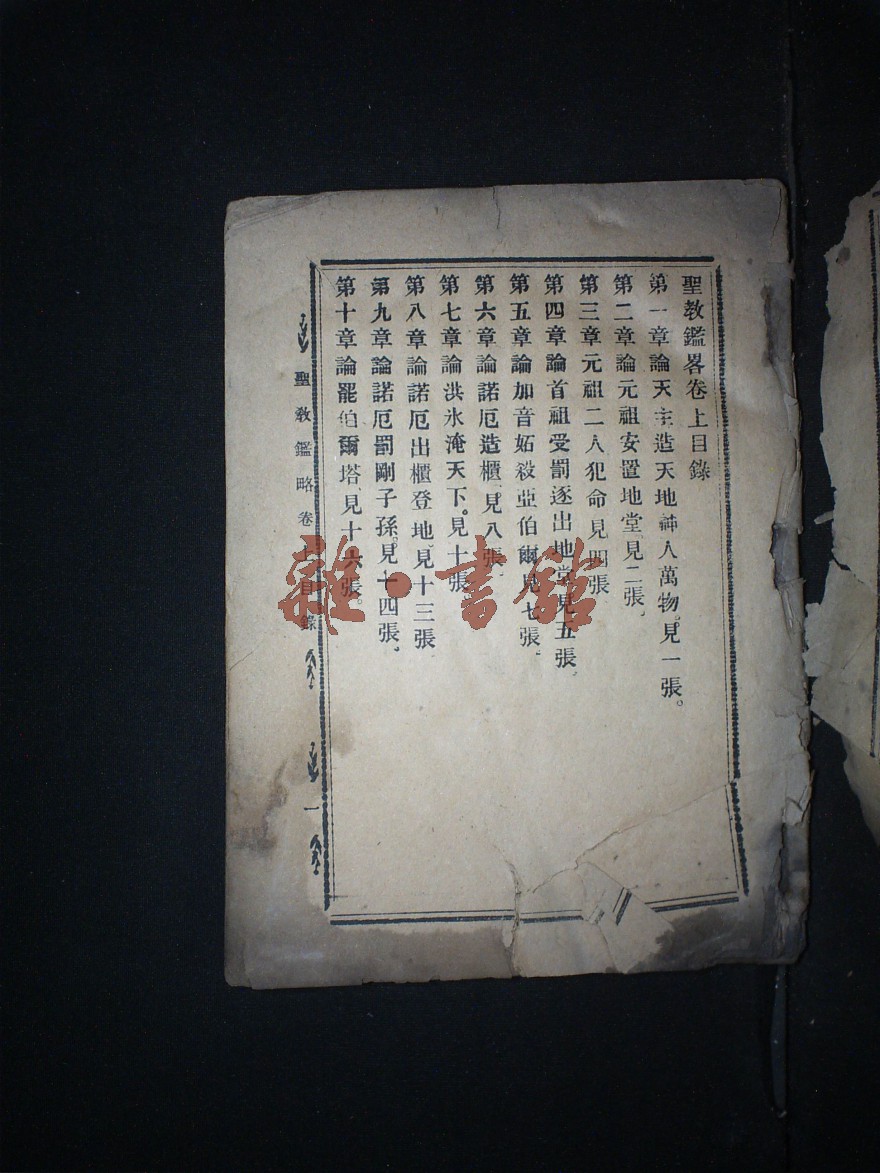 聖教鑑畧卷上目錄
第一章論天主造天地神人萬物。見一張。
第二章論元祖安置地堂、見二張、
第三章元祖二人犯命見四張
第四章論首祖受罰逐出地堂見五張、
第五章論加音妬殺亞伯爾見七張、
第六章論諾厄造櫃、見八張
第七章論洪水淹天下。見十張
第八章論諾厄出櫃登地、見十三張
第九章論諾厄罰剛子孫。見十四張。
第十章論罷伯爾塔、見十六張。
聖教鑑略卷上目錄
一
雜·書館